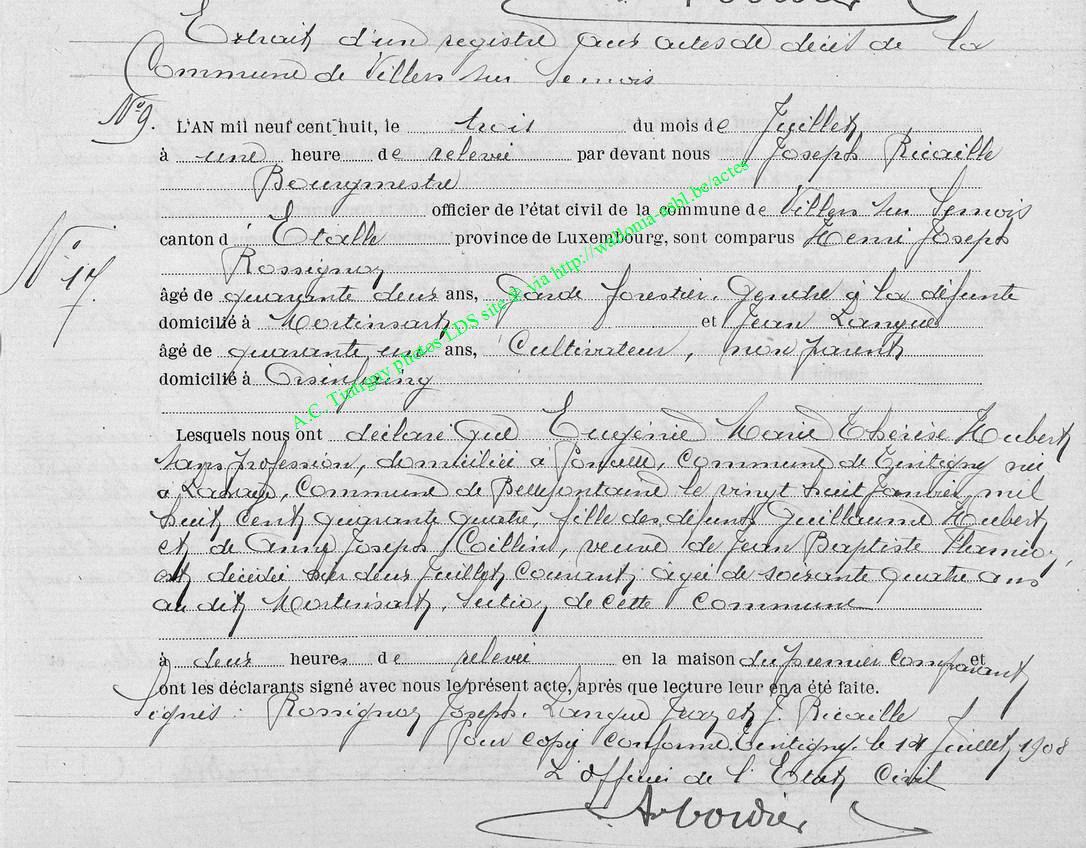 Extrait d'un registre aux actes de décès de la
Commune de Villers sur Semois
N° 9.
L'AN mil neuf cent huit, le trois du mois de Juillet
à une heure de relevée par devant nous Joseph Ricaille
Bourgmestre
officier de l'état civil de la commune de Villers sur Semois
canton d'Etalle province de Luxembourg, sont comparus Henri Joseph
Rossignol
N° 17.
âgé de quarante deux ans, Garde forestier, Gendre à la défunte
domicilié à Mortinsart et Jean Langue
âgé de quarante un ans, Cultivateur, non parent
domicilié à Orsinfaing
Lesquels nous ont déclaré que Eugénie Marie Thérèse Hubert
sans profession, domiciliée à Poncelle, Commune de Tintigny née
à Lahage, Commune de Bellefontaine le vingt huit Janvier mil
huit cent quarante quatre, fille des défunts Guillaume Hubert
et de Anne Joseph Collin, veuve de Jean Baptiste Flamion,
est décédée hier deux Juillet courant, âgée de soixante quatre ans
au dit Mortinsart, section de cette Commune
à deux heures de relevée en la maison du premier comparant et
ont les déclarants signé avec nous le présent acte, après que lecture leur en a été faite.
Signés : Rossignol Joseph. Langue Jean et J. Ricaille
Pour copie conforme. Tintigny, le 14 Juillet 1908
L'officier de l'Etat Civil
A.C. Tintigny photos LDS site © via http://wallonia-asbl.be/actes